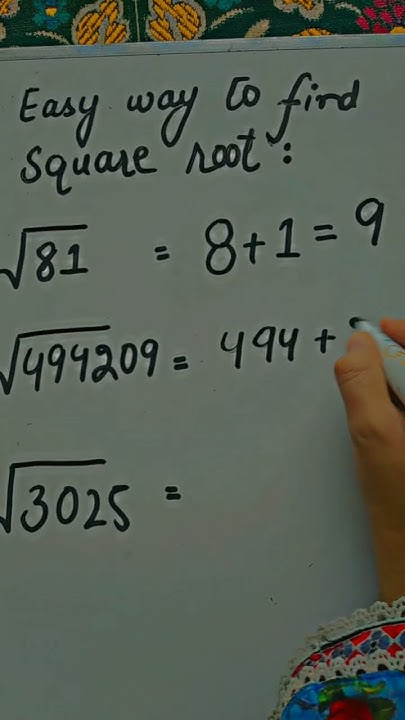 Easy way to find
Square root:
√81 = 8+1=9
√494209 = 494 +
√3025 =